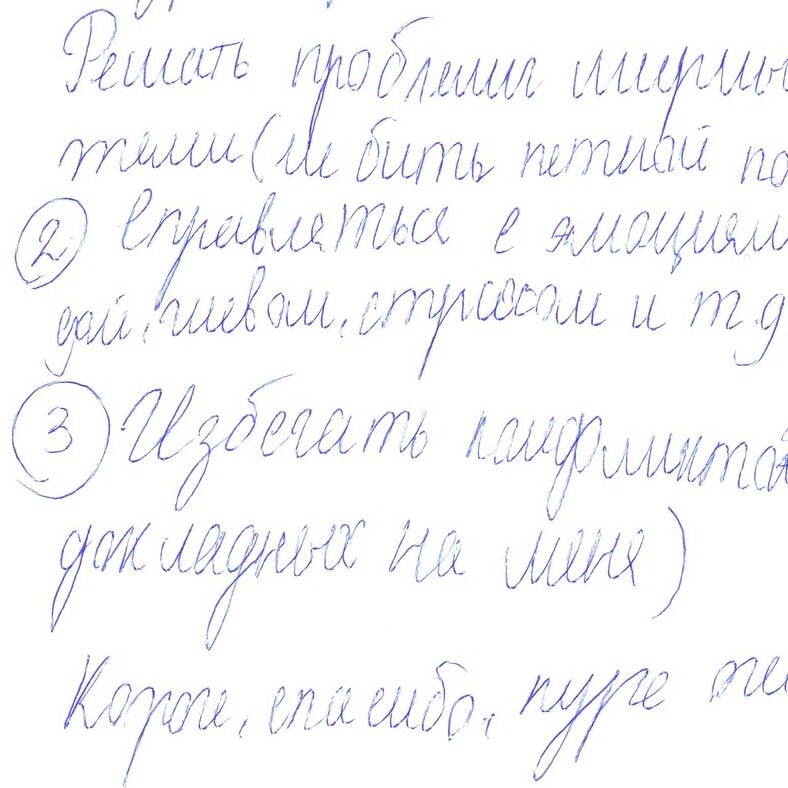 Решать проблемы мирны
теми (не бить петлёй по
② Справляться с эмоциям
дой, гневом, стрессом и т.д
③ Избегать конфликто
докладных на меня)
Короче, спасибо,